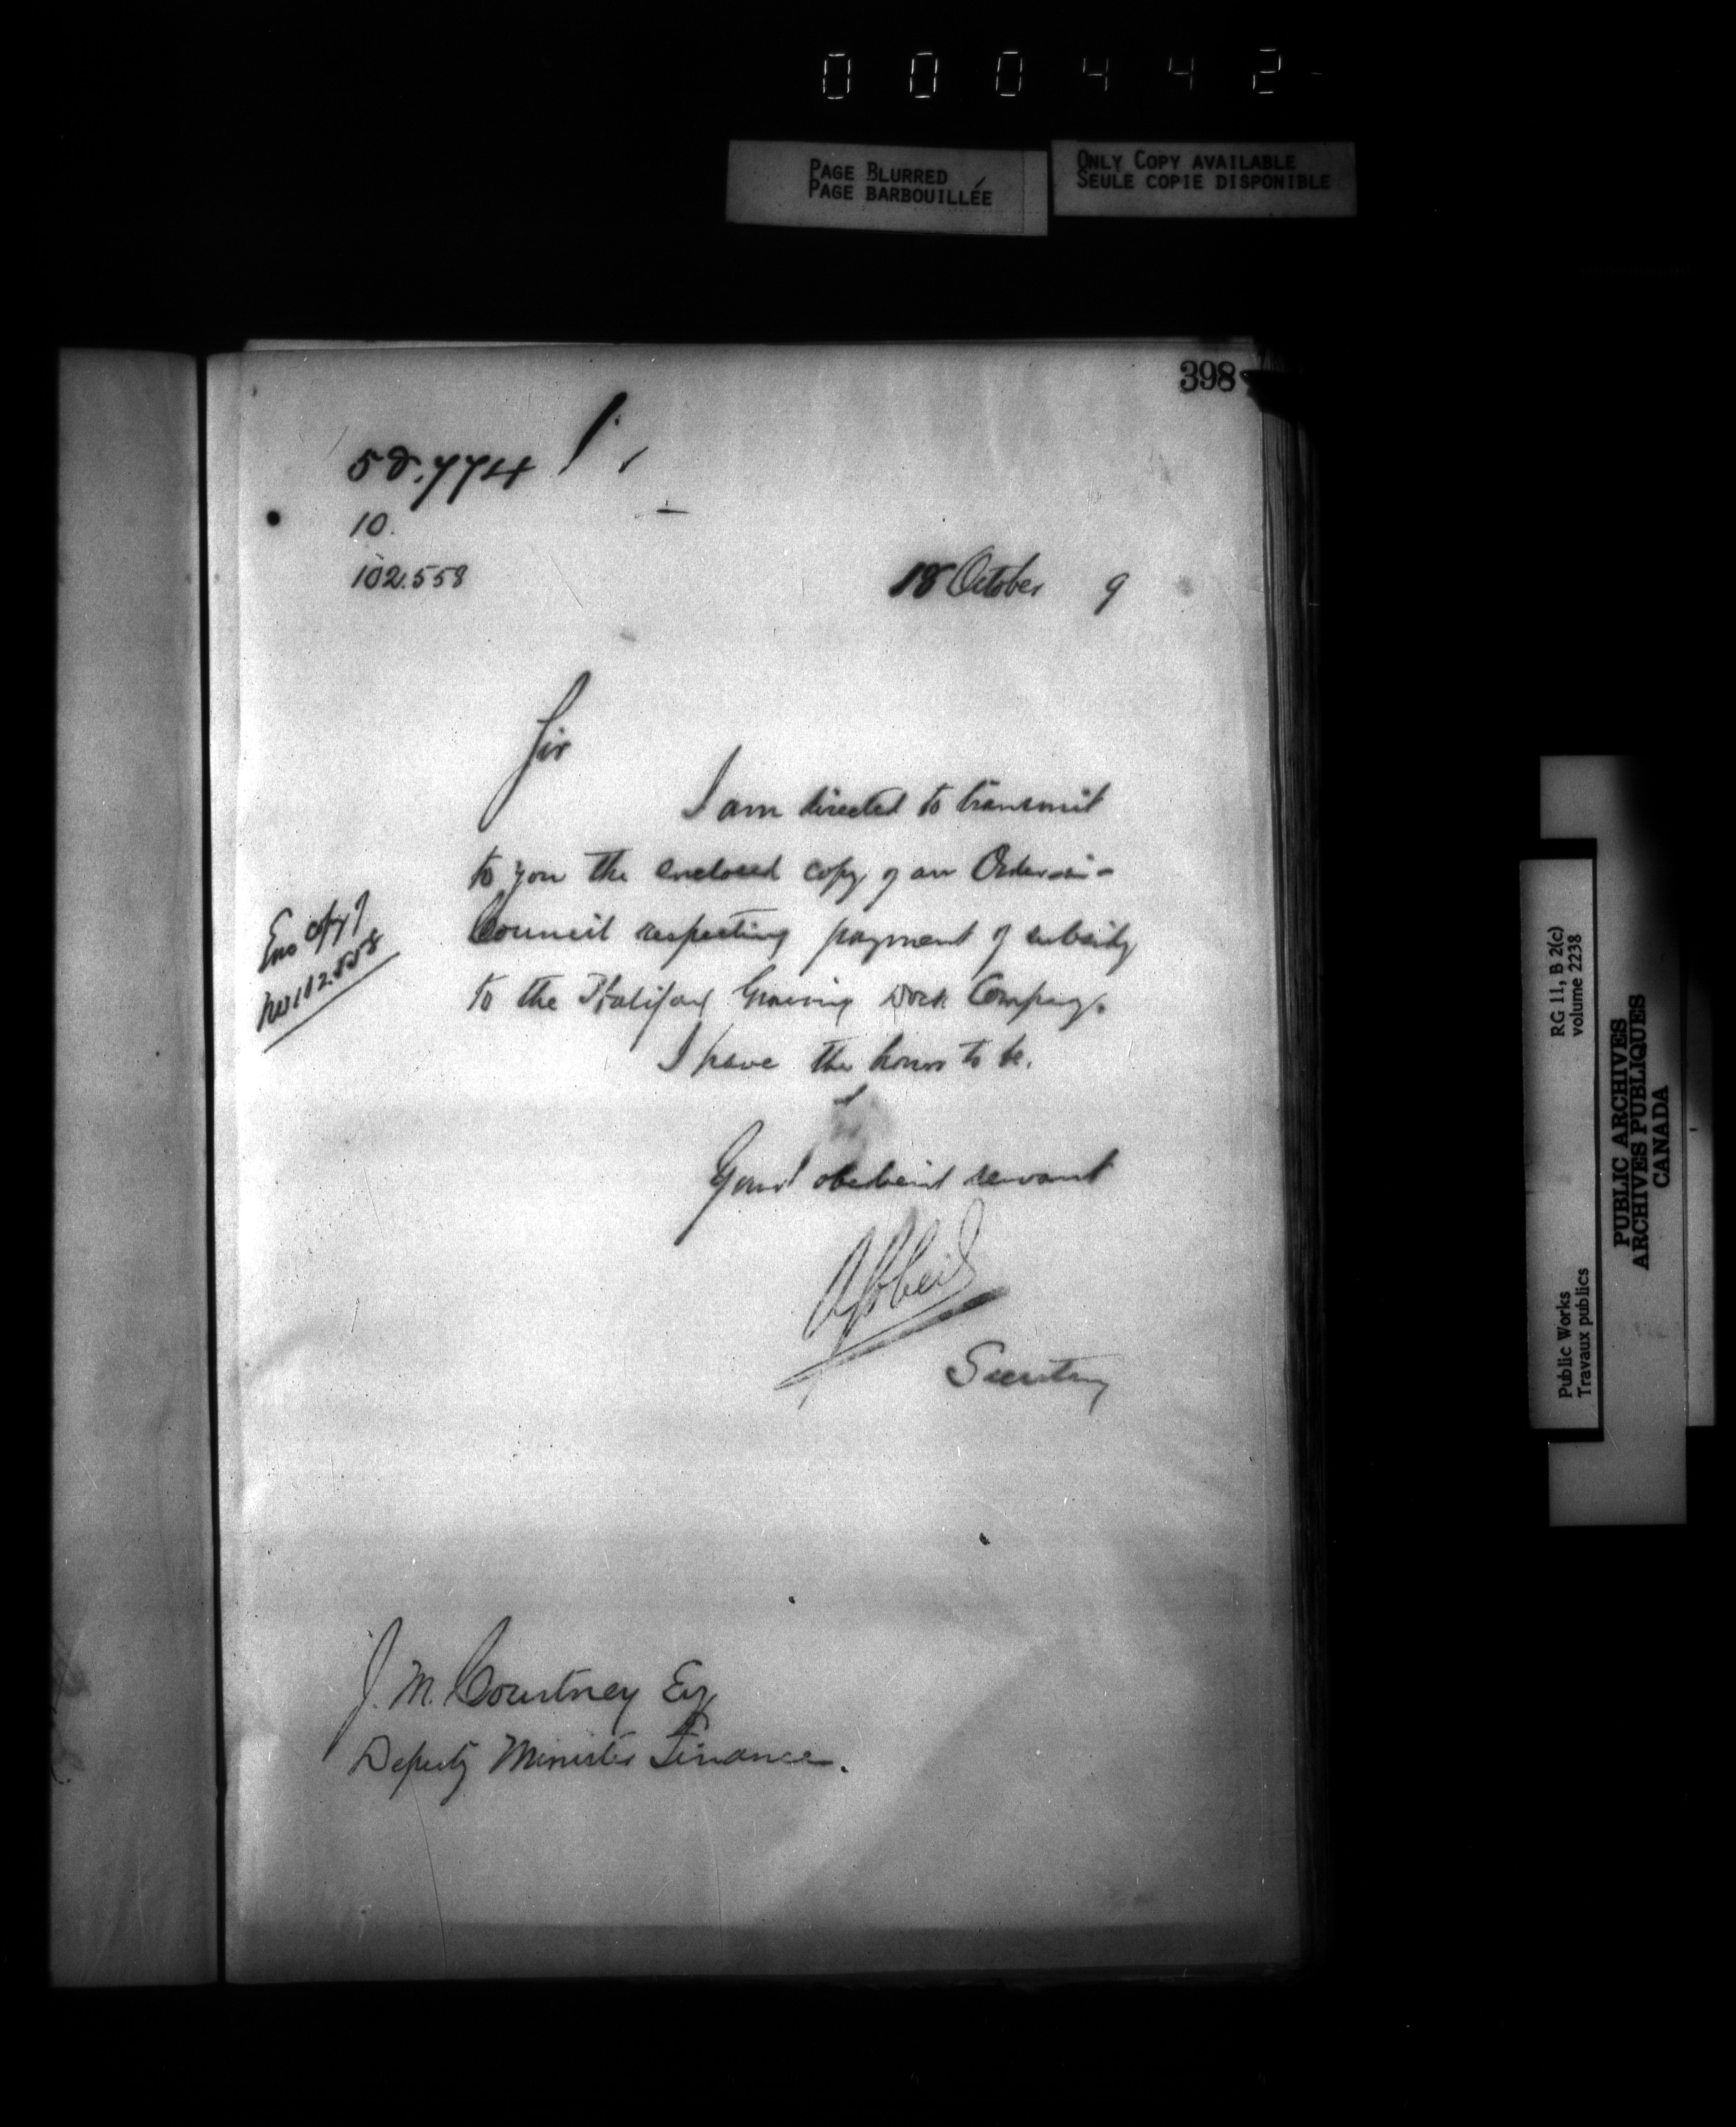 000442
PAGE BLURRED
PAGE BARBOUILLÉE
ONLY COPY AVAILABLE
SEULE COPIE DISPONIBLE
398
58.774
10.
102.558
18 October 9
Sir
I am directed to transmit
to you the enclosed copy of an Order-in-
Council respecting payment of subsidy
to the Halifax Graving Dock Company.
Enc copy of
No 102.558
I have the honor to be.
Sir
Your obedient servant
Secretary
J. M. Courtney Esq
Deputy Minister Finance.
RG 11, B 2(c)
volume 2238
Public Works
Travaux publics
PUBLIC ARCHIVES
ARCHIVES PUBLIQUES
CANADA